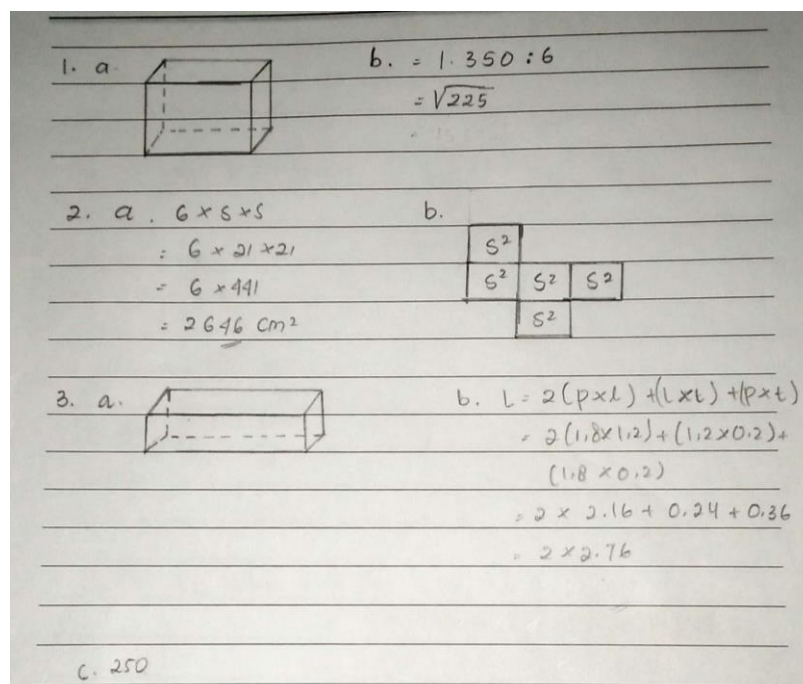 1. a. b. = 1.350 : 6
= √225
2. a. 6 × s × s b.
= 6 × 21 × 21
= 6 × 441
= 2646 cm²
s²
s² s² s²
s²
3. a. b. L = 2(p×l) + (l×t) + (p×t)
= 2(1,8×1,2) + (1,2×0,2) +
(1,8 × 0,2)
= 2 × 2.16 + 0.24 + 0.36
= 2 × 2.76
c. 250